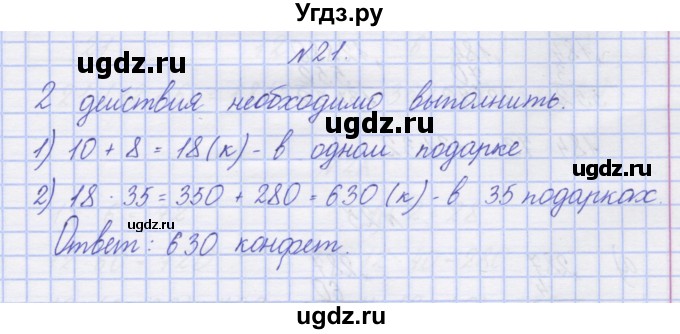 Угдз.ру
ugdz.ru
№21.
2 действия необходимо выполнить.
ugdz.ru
1) 10 + 8 = 18 (к) - в одном подарке
2) 18 · 35 = 350 + 280 = 630 (к) - в 35 подарках.
ugdz.ru
ugdz.ru
Ответ: 630 конфет.
ugdz.ru